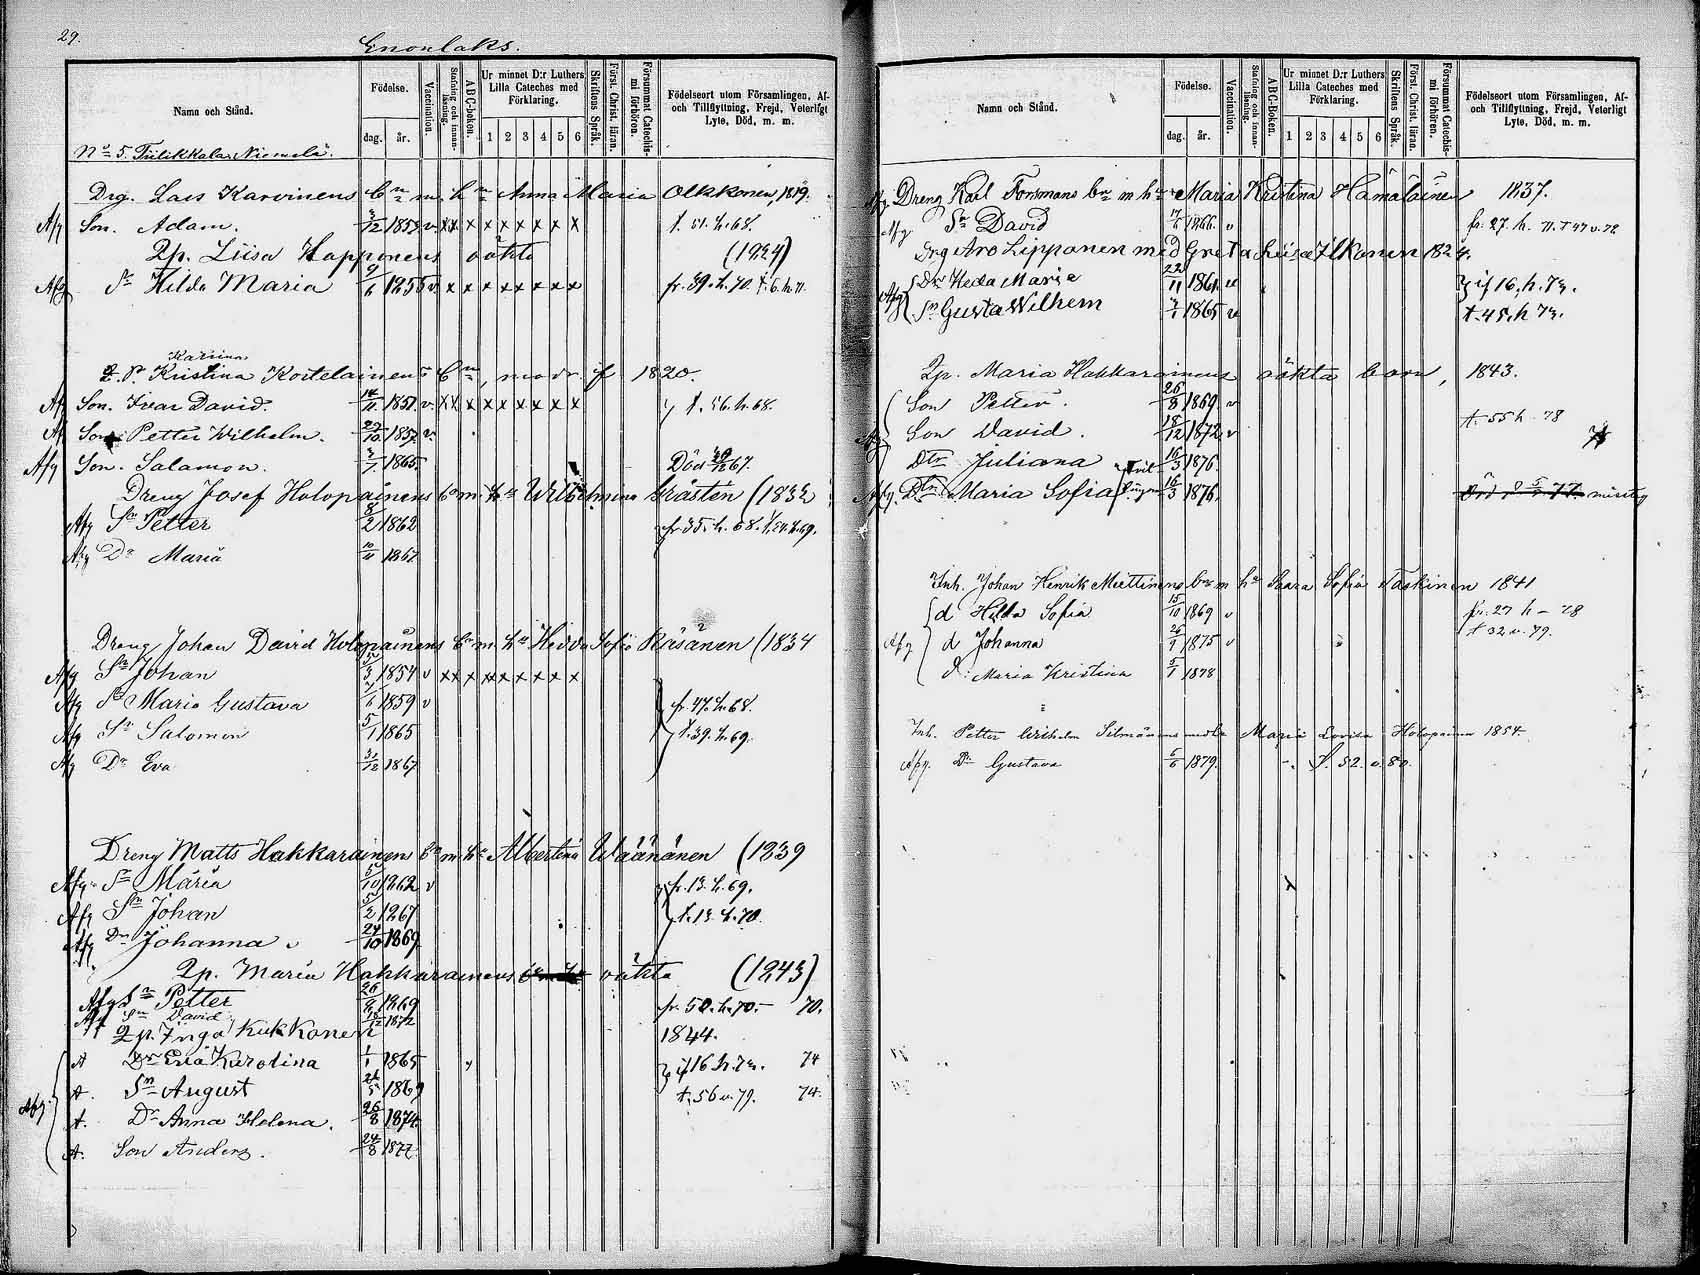 29.
Enonlaks.
Namn och Stånd.
Födelse.
dag.
år.
Vaccination.
Stafning och innan-läsning.
A B C-boken.
Ur minnet D:r Luthers
Lilla Cateches med
Förklaring.
1 2 3 4 5 6
Skriftens Språk.
Först. Christ. läran.
Försummat Catechis-
mi förhören.
Födelseort utom Församlingen, Af-
och Tillflyttning, Frejd, Veterligt
Lyte, Död, m. m.
No 5. Tiilikkala Niemelä.
Drg. Lars Karvinens bn m. hu Anna Maria Olkkonen, 1819.
Afg Son. Adam. 1853 v x x x x x x x x x t. 51. h. 68.
Qp. Liisa Happonens oäkta (1824)
Afg Dr Hilda Maria 9/6 1855 v x x x x x x x x fr. 39. h. 70. t. 6. h. 71.
Karina
Q. P. Kristina Kortelainens bn, moder f 1820.
Af Son. Ivar David. 1851. v. x x x x x x x x x t. 56. h. 68.
Af Son Petter Wilhelm. 29/10 1857. v.
Afg Son. Salamon. 1865 Död 67.
Dreng Josef Holopainens bn m hu Wilhelmina Kråsten (1832
Afg Sn Petter 8/2 1862 fr 35. h. 68. t. h. 69.
Afg Dr Maria 10/11 1867.
Dreng Johan David Holopainens bn m. hu Hedda Sofia Räsänen (1834
Afg Sn Johan 5/3 1854 v x x x x x x x x x
Afg Dr Maria Gustava 7/6 1859 v fr. 47. h. 68.
Afg Sn Salomon 5/1 1865 t. 39. h. 69.
Afg Dr Eva 1867
Dreng Matts Hakkarainens bn m. hu Albertina Wäänänen (1839
Afg Maria 5/10 1862 v fr. 13. h. 69.
Afg Sn Johan 5/2 1867 t. 13. h. 70.
Afg Dr Johanna 24/10 1869
Qp. Maria Hakkarainens oäkta (1843)
Afg Sn Petter 26/8 1869 fr. 50. h. 70. 70.
Af Sn David 18/12 1872
Qp. Inga Kukkonen 1844.
A Dr Eva Karolina 1/1 1865 if 16 h. 73. 74
A. Sn August 26/5 1869 t. 56 v. 79. 74.
Afg. A. Dr Anna Helena. 25/8 1874
A. Son Anders. 24/8 1877
Namn och Stånd.
Födelse.
dag.
år.
Vaccination.
Stafning och innan-läsning.
A B C-boken.
Ur minnet D:r Luthers
Lilla Cateches med
Förklaring.
1 2 3 4 5 6
Skriftens Språk.
Först. Christ. läran.
Försummat Catechis-
mi förhören.
Födelseort utom Församlingen, Af-
och Tillflyttning, Frejd, Veterligt
Lyte, Död, m. m.
Afg Dreng Karl Forsmans bn m hu Maria Kristina Hämäläinen 1837.
Afg Sn David 17/6 1866. v fr. 27. h. 71. t 47 v. 72
Drg Aro Lipponen med Greta Liisa Ilkonen 1824.
Dr Heda Maria 22/11 1861. v if 16, h. 73.
Afg Sn Gusta Wilhem 1865 v t. 45, h 73.
Qp. Maria Hakkarainens oäkta barn, 1843.
Son Petter. 26/8 1869. v
Afg Son David. 18/12 1872 v t. 55 h. 78
Dtr Juliana 16/3 1876.
Afg. Dtr Maria Sofia 16/3 1876.
Inh. Johan Henrik Miettinens bn m hu Saara Sofia Taskinen 1841
d Hilda Sofia 15/10 1869 v fr. 27 h - 78
Afg d Johanna 26/9 1875 v t 32 v. 79.
d: Maria Kristina 5/1 1878
Inh. Petter Wilhelm Silmänens Maria Lovisa Holopainen 1854.
Afg. Dr Gustava 5/6 1879. t. 52. v. 80.